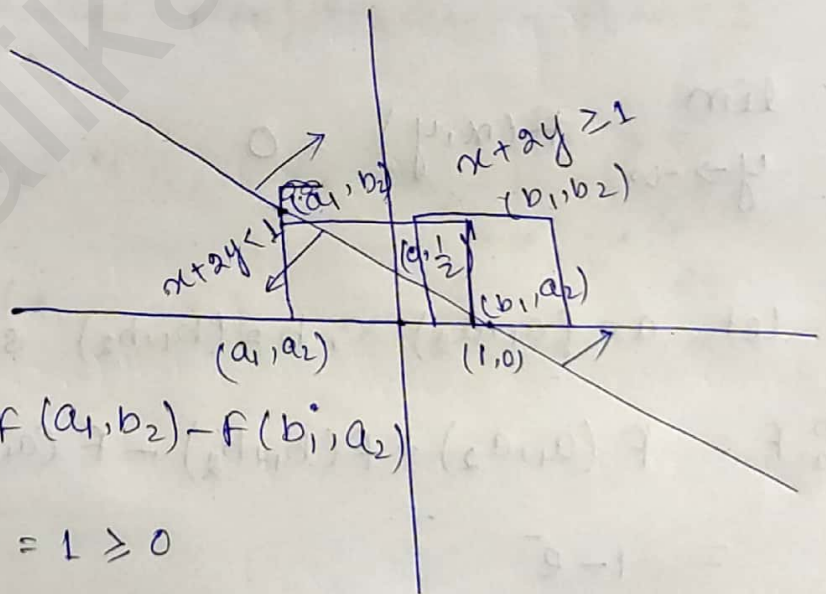 x+2y ≥ 1
(a₁, b₂)
(b₁, b₂)
x+2y < 1
(0, 1/2)
(b₁, a₂)
(a₁, a₂)
(1,0)
F(a₁, b₂) - F(b₁, a₂)
= 1 ≥ 0